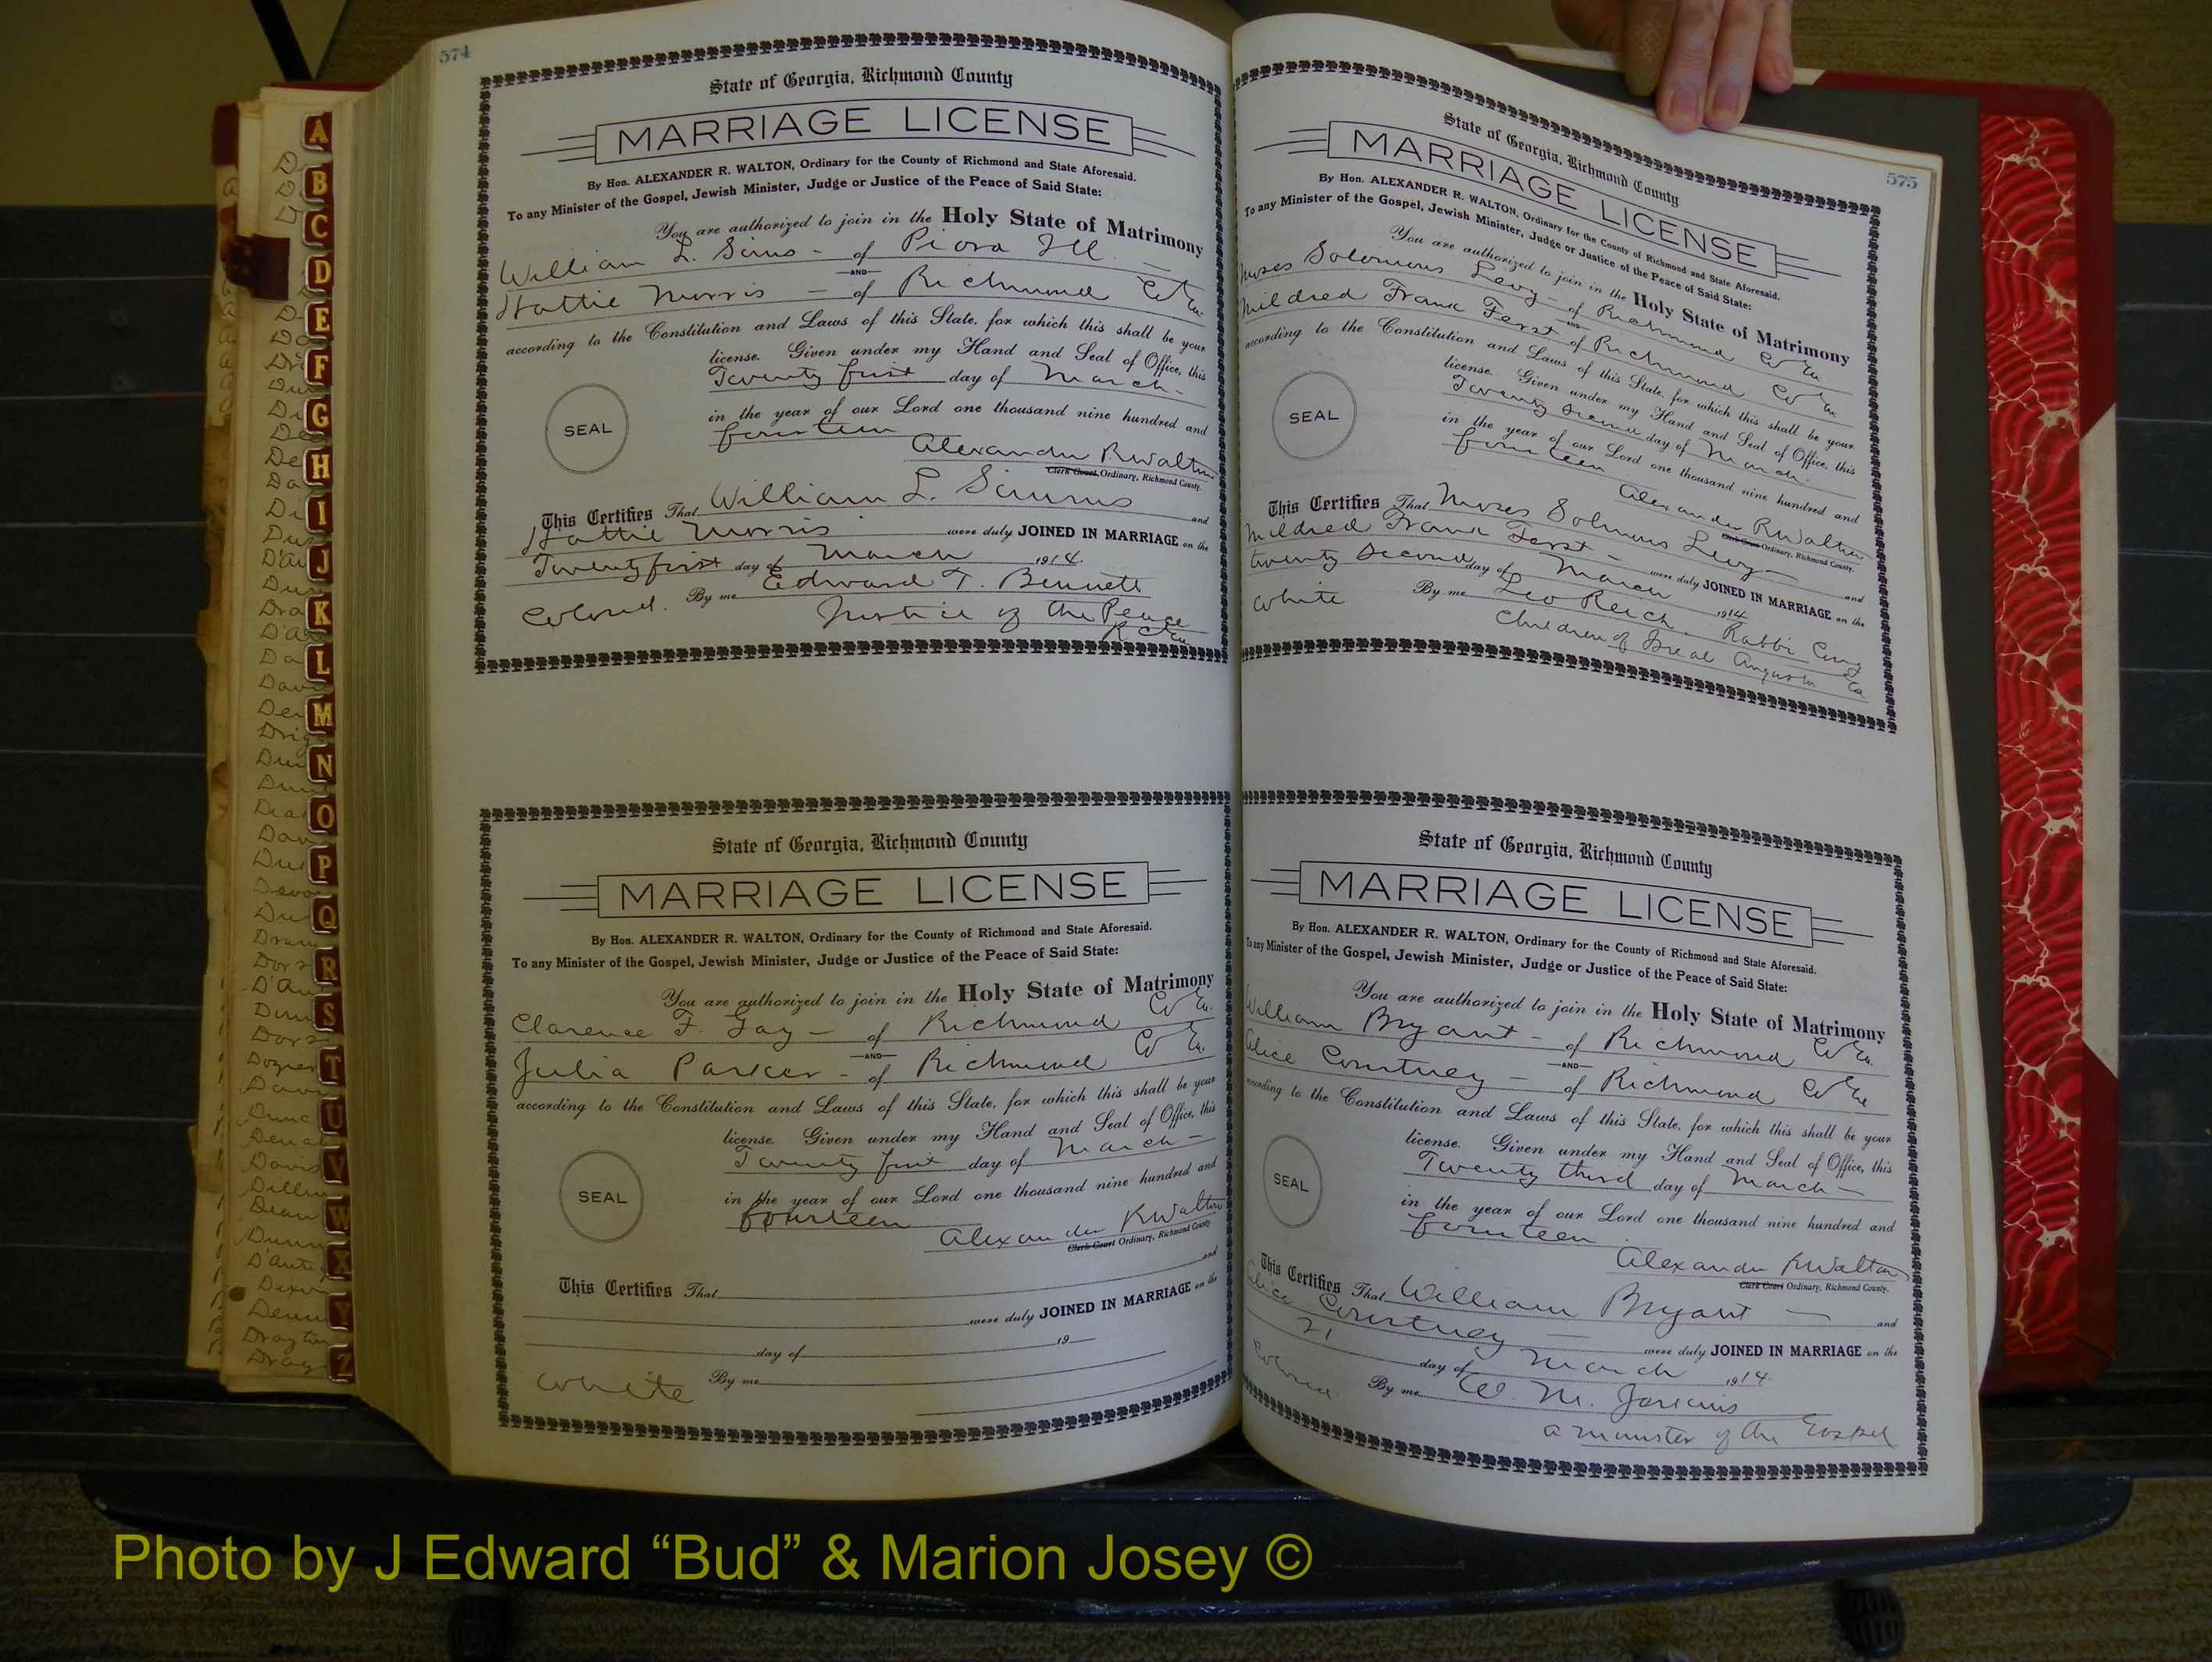 574
State of Georgia, Richmond County
MARRIAGE LICENSE
By Hon. ALEXANDER R. WALTON, Ordinary for the County of Richmond and State Aforesaid.
To any Minister of the Gospel, Jewish Minister, Judge or Justice of the Peace of Said State:
You are authorized to join in the Holy State of Matrimony
William L. Sims - of Piora Ill.
AND
Hattie Morris - of Richmond Co Ga.
according to the Constitution and Laws of this State, for which this shall be your
license. Given under my Hand and Seal of Office, this
Twenty first day of March -
in the year of our Lord one thousand nine hundred and
fourteen
SEAL
Alexander R Walton
Clerk Court Ordinary, Richmond County.
This Certifies That William L. Simms and
Hattie Morris were duly JOINED IN MARRIAGE on the
Twenty first day of March 1914.
Colored. By me Edward T. Bennett
Justice of the Peace
R C Ga
State of Georgia, Richmond County
MARRIAGE LICENSE
By Hon. ALEXANDER R. WALTON, Ordinary for the County of Richmond and State Aforesaid.
To any Minister of the Gospel, Jewish Minister, Judge or Justice of the Peace of Said State:
You are authorized to join in the Holy State of Matrimony
Clarence F. Gay - of Richmond Co Ga.
AND
Julia Parker - of Richmond Co Ga.
according to the Constitution and Laws of this State, for which this shall be your
license. Given under my Hand and Seal of Office, this
Twenty first day of March -
in the year of our Lord one thousand nine hundred and
fourteen
SEAL
Alexander R Walton
Clerk Court Ordinary, Richmond County.
This Certifies That and
were duly JOINED IN MARRIAGE on the
day of 19
White By me
575
State of Georgia, Richmond County
MARRIAGE LICENSE
By Hon. ALEXANDER R. WALTON, Ordinary for the County of Richmond and State Aforesaid.
To any Minister of the Gospel, Jewish Minister, Judge or Justice of the Peace of Said State:
You are authorized to join in the Holy State of Matrimony
Moses Solomons Levy - of Richmond Co Ga
AND
Mildred Frank Ferst of Richmond Co Ga
according to the Constitution and Laws of this State, for which this shall be your
license. Given under my Hand and Seal of Office, this
Twenty second day of March.
in the year of our Lord one thousand nine hundred and
fourteen
SEAL
Alexander R Walton
Clerk Court Ordinary, Richmond County.
This Certifies That Moses Solomons Levy - and
Mildred Frank Ferst - were duly JOINED IN MARRIAGE on the
twenty second day of March 1914
White By me Leo Reich. Rabbi Cong
Children of Isreal Augusta Ga
State of Georgia, Richmond County
MARRIAGE LICENSE
By Hon. ALEXANDER R. WALTON, Ordinary for the County of Richmond and State Aforesaid.
To any Minister of the Gospel, Jewish Minister, Judge or Justice of the Peace of Said State:
You are authorized to join in the Holy State of Matrimony
William Bryant - of Richmond Co Ga.
AND
Alice Courtney - of Richmond Co Ga
according to the Constitution and Laws of this State, for which this shall be your
license. Given under my Hand and Seal of Office, this
Twenty third day of March -
in the year of our Lord one thousand nine hundred and
fourteen
SEAL
Alexander R Walton
Clerk Court Ordinary, Richmond County.
This Certifies That William Bryant - and
Alice Courtney - were duly JOINED IN MARRIAGE on the
21 day of March 1914
Colored By me W. M.
a minister of the Gospel
A
B
C
D
E
F
G
H
I
J
K
L
M
N
O
P
Q
R
S
T
U
V
W
X
Y
Z
Photo by J Edward “Bud” & Marion Josey ©